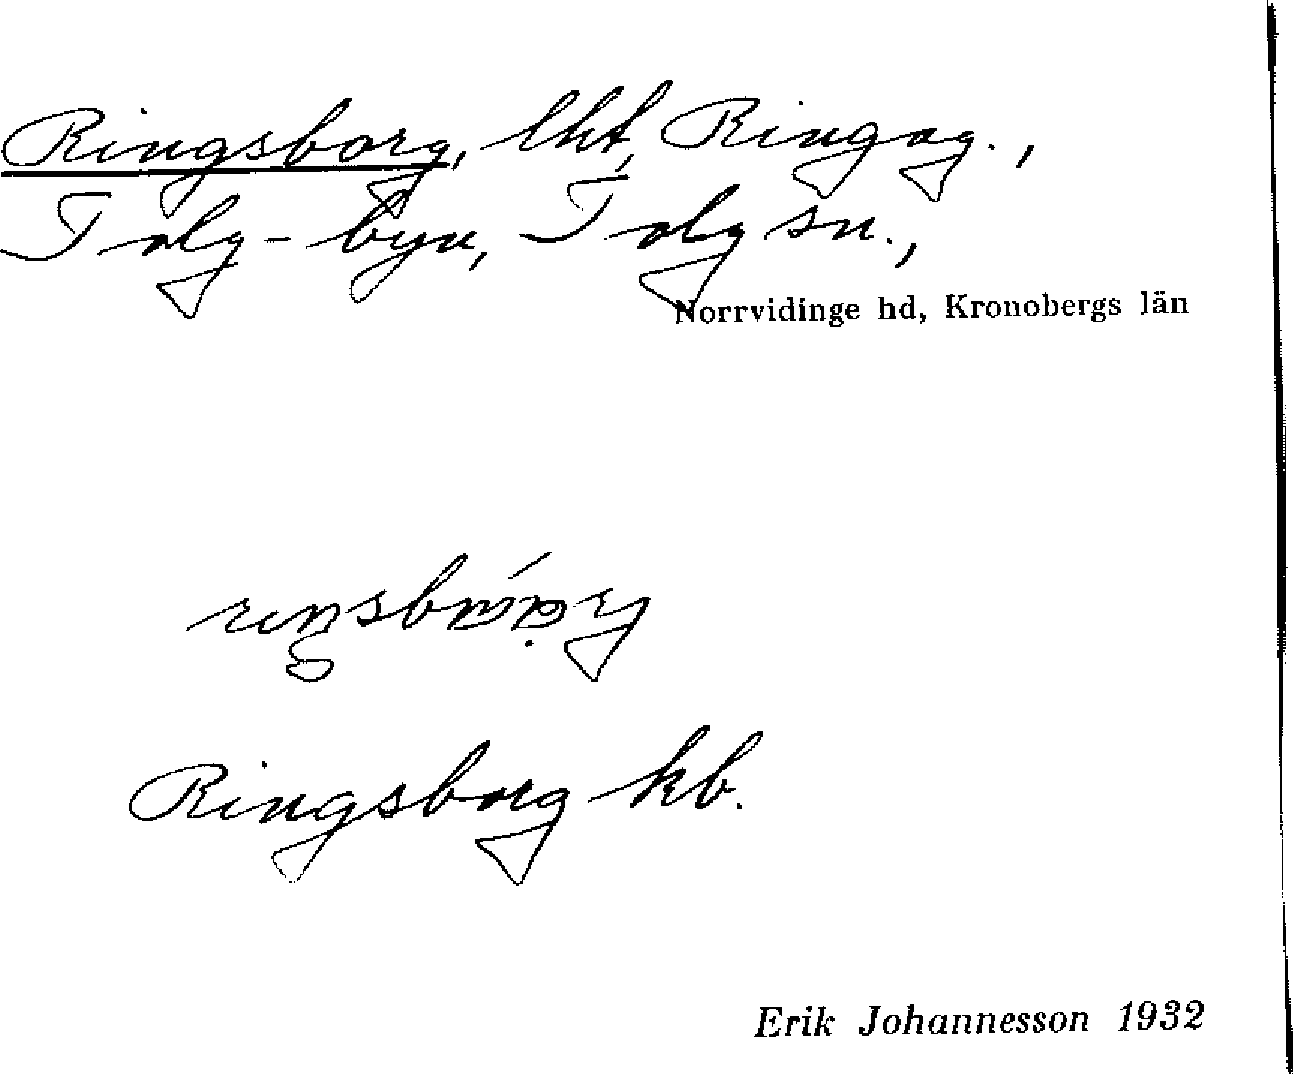 Ringsborg, lht, Ringag.,
Tolg-byn, Tolg sn.,
Norrvidinge hd, Kronobergs län
Ringsborg kb.
Erik Johannesson 1932